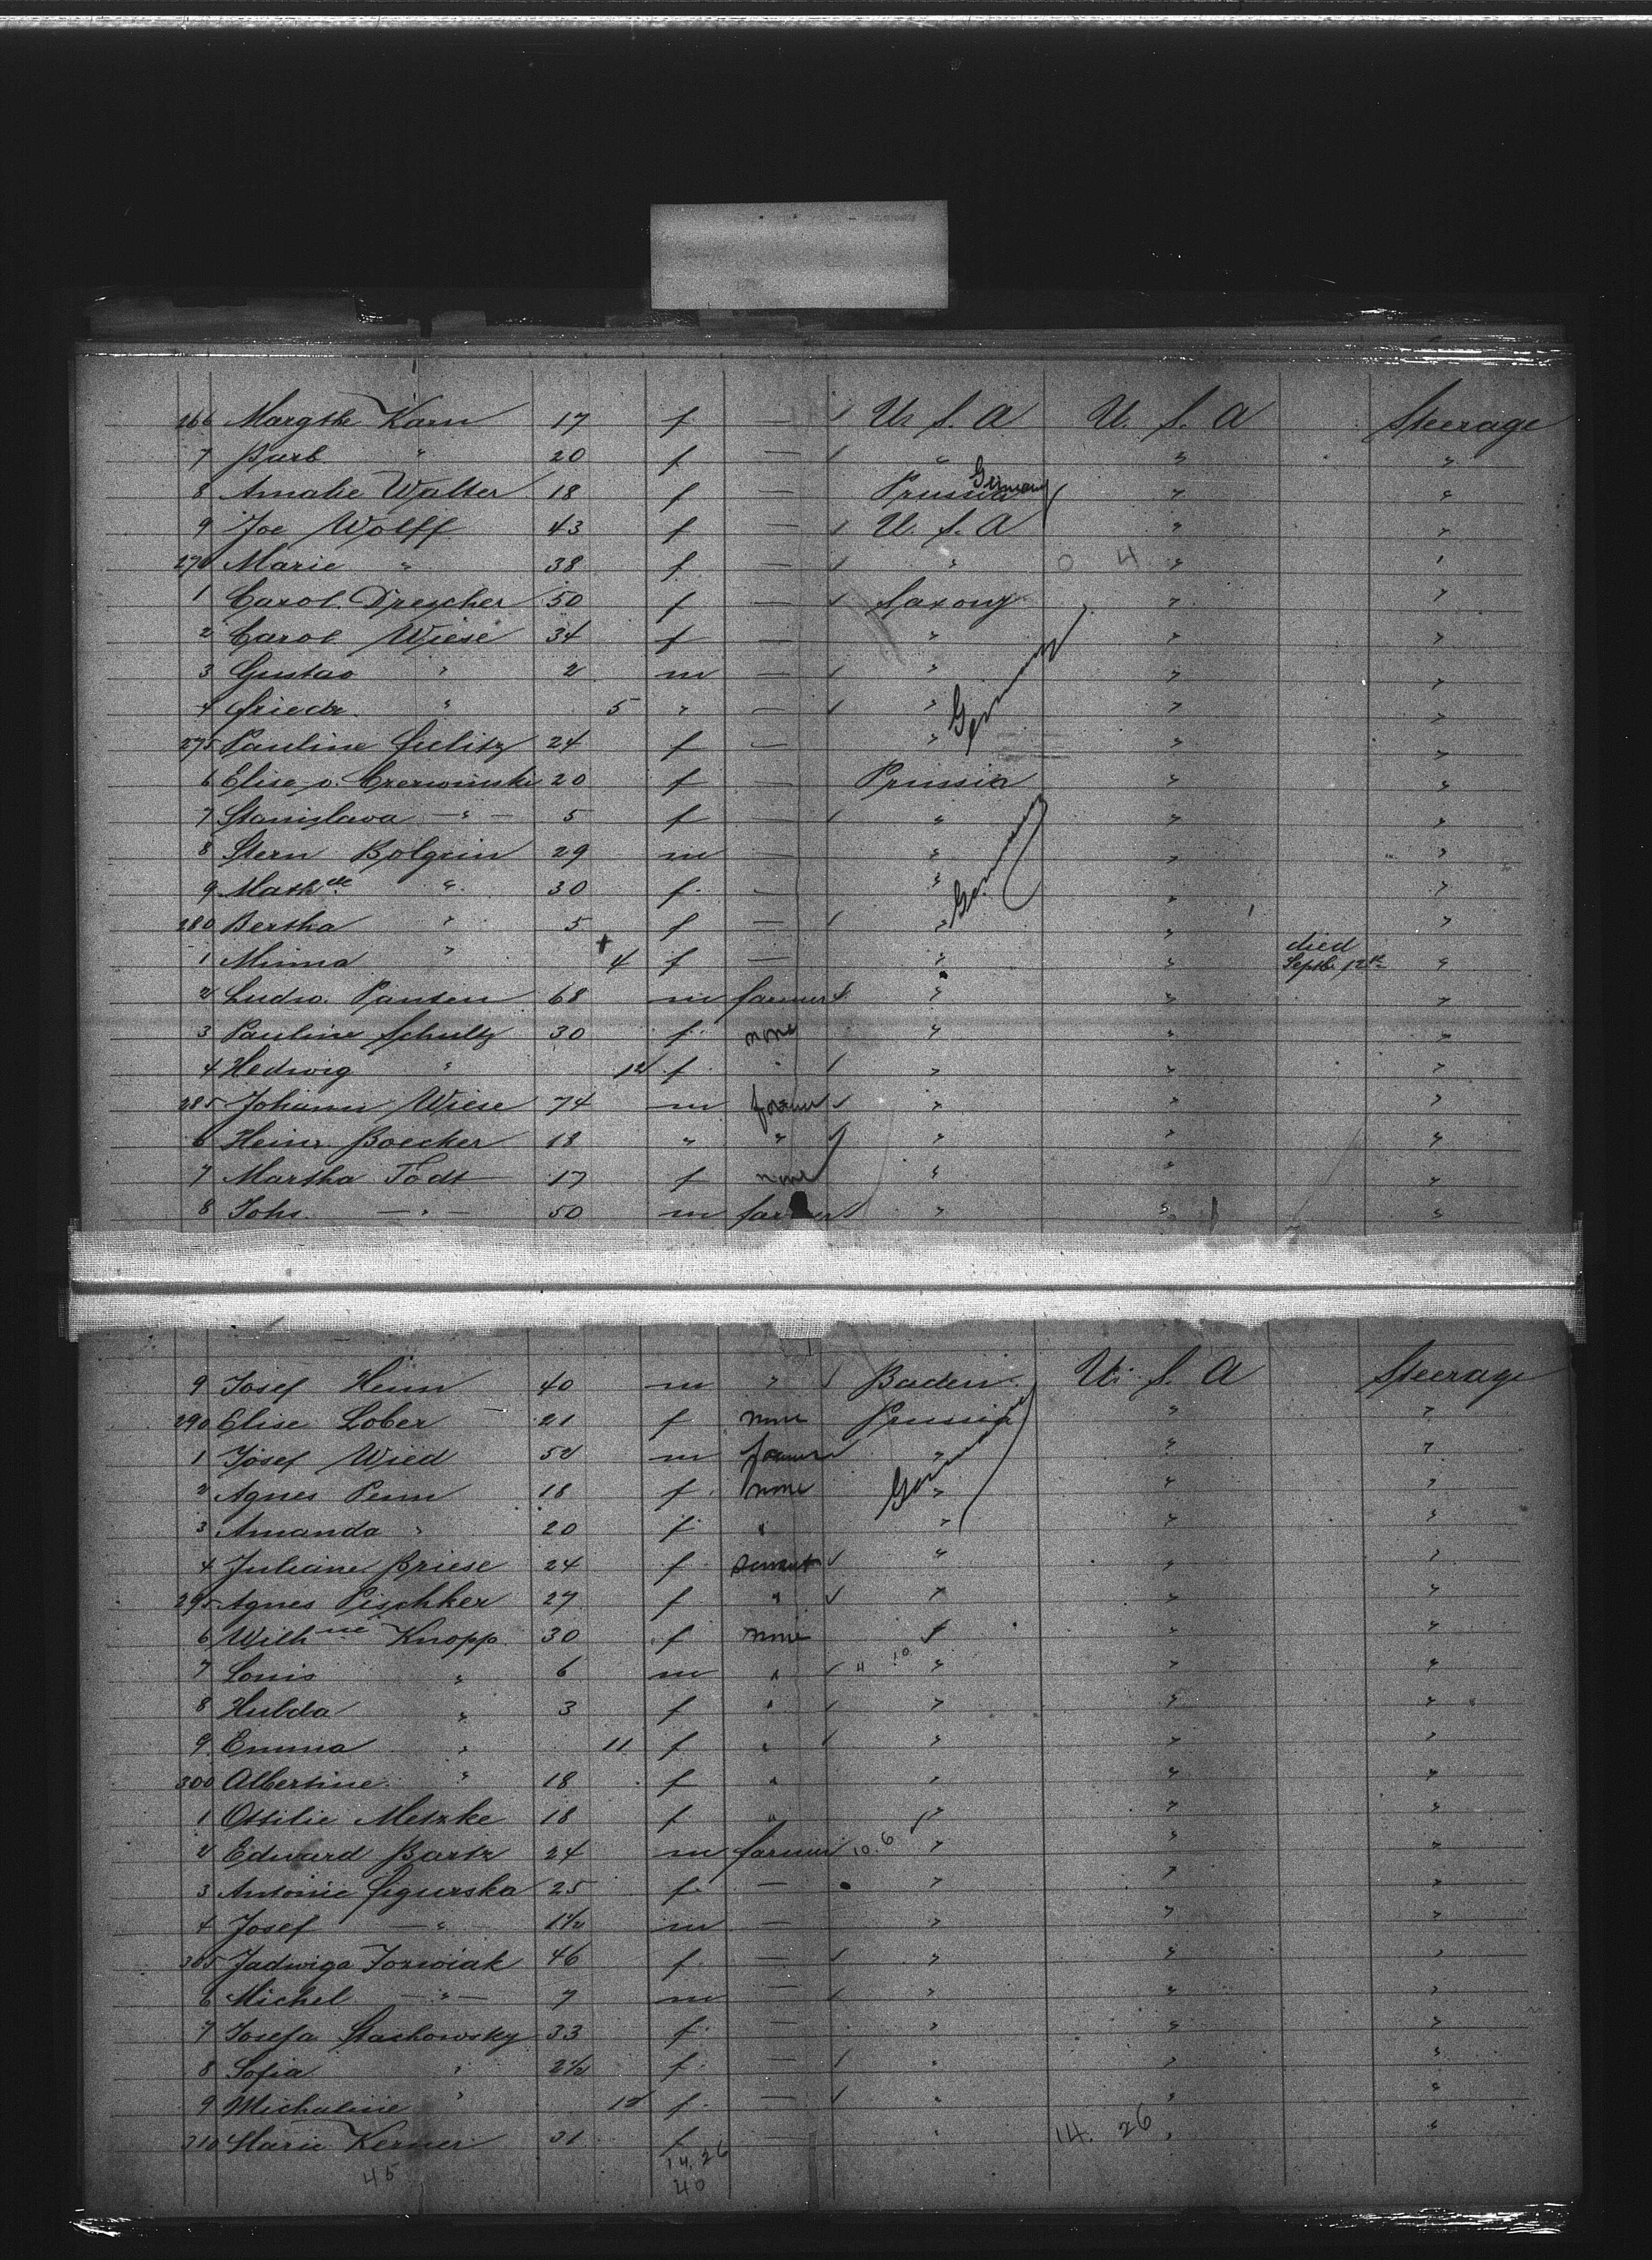 266 Margthe Karn 17 f — ✓ U. S. A U. S. A Steerage
7 Barb. " 20 f — ✓ " " "
8 Amalie Walter 18 f — Prussia Germany " "
9 Joe Wolff 43 f — ✓ U. S. A " "
270 Marie " 38 f — ✓ " 0 4 " "
1 Carol. Drescher 50 f — ✓ Saxony " "
2 Carol Wiese 34 f — " " "
3 Gustav " 2 m — ✓ " " "
4 Friedr. " 5 " — ✓ " Germany " "
275 Pauline 24 f — " " "
6 Elise v. Czerwinski 20 f — Prussia " "
7 Stanislava — " — 5 f — ✓ " " "
8 Stern Bolgrin 29 m — " " "
9 Mathde " 30 f. — " Germany " "
280 Bertha " 5 f — ✓ " " "
1 Minna " + 4 f — " " died Septb. 12th "
2 Ludw. Pansen 68 m farmer ✓ " " "
3 Pauline Schultz 30 f. none " " "
4 Hedwig " 12 f. " ✓ " " "
285 Johann Wiese 74 m farmer ✓ " " "
6 Heinr. Boecker 18 " " ✓ " " "
7 Martha Todt 17 f none " " "
8 Johs. — " — 50 m farmer ✓ " " "
9 Josef Heim 40 m " ✓ Baden U. S. A Steerage
290 Elise Lober 21 f none Prussia " "
1 Josef Wied 52 m farmer ✓ " " "
2 Agnes Penn 18 f. none Germany " " "
3 Amanda " 20 f. " " " "
4 Juliane Briese 24 f. servant ✓ " " "
295 Agnes Pischker 27 f " ✓ " " "
6 Wilhne Knopp 30 f none " " "
7 Louis " 6 m " ✓ 4 10 " " "
8 Hulda " 3 f " ✓ " " "
9 Emma " 11 f " ✓ " " "
300 Albertine " 18 f " " " "
1 Ottilie Metzke 18 f " " " "
2 Edward Bartz 24 m farmer 10. 6 " " "
3 Antonie Sigurska 25 f. — " " "
4 Josef — " — 1 1/2 m — " " "
305 Jadwiga Jozwiak 46 f. — ✓ " " "
6 Michel — " — 7 m — ✓ " " "
7 Josefa Stachowsky 33 f. — " " "
8 Sofia " 2 1/2 f. — ✓ " " "
9 Michaline " f. — ✓ " " "
310 Marie Kerner 31 f — " 14. 26 " "
45 14. 26
40